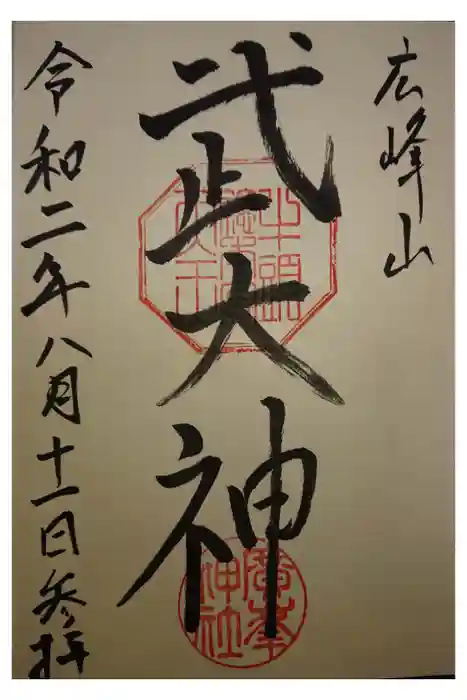 広峰山
武大神
令和二年八月十一日参拝
廣峯
神社